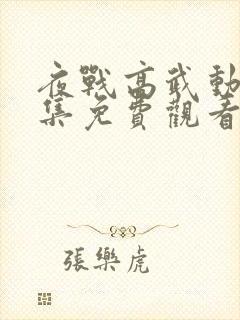 夜戰高武動
集免費觀看
張樂虎